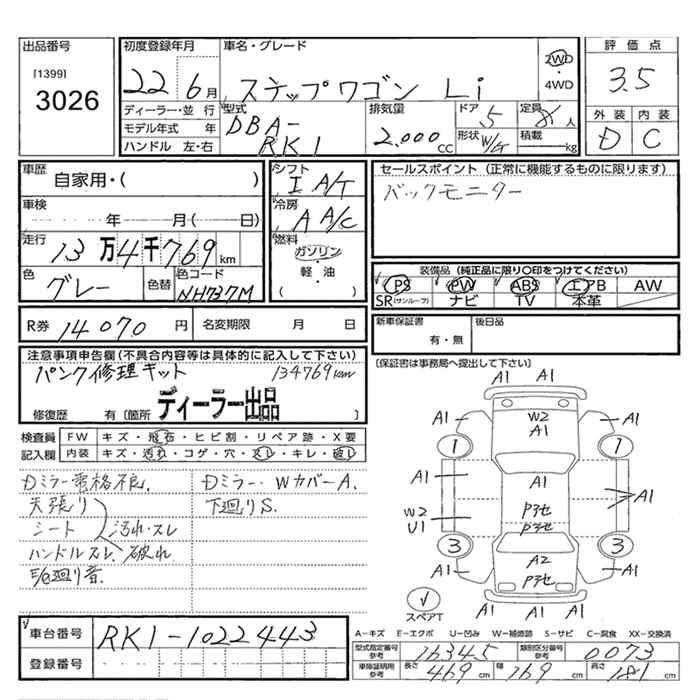 出品番号
[1399]
3026
初度登録年月
22 6月
車名・グレード
ステップワゴン Li
2WD
・
4WD
評価点
3.5
ディーラー・並行
モデル年式 年
ハンドル 左・右
型式
DBA-
RK1
排気量
2.000cc
ドア
5
定員
8人
形状 W/G
積載
kg
外装 内装
D C
車歴
自家用・( )
車検
年 月( 日)
走行
13万4千769km
色
グレー
色替
色コード
NH737M
シフト
I A/T
冷房
A A/C
燃料
ガソリン
・
軽・油
( )
セールスポイント (正常に機能するものに限ります)
バックモニター
装備品 (純正品に限り○印をつけてください)
PS PW ABS エアB AW
SR(サンルーフ) ナビ TV 本革
R券 14070円
名変期限 月 日
新車保証書
有・無
後日品
(保証書は事務局へ提出して下さい)
注意事項申告欄(不具合内容等は具体的に記入して下さい)
パンク修理キット 134769km
修復歴 有〔箇所 ディーラー出品 〕
検査員 FW キズ・飛石・ヒビ割・リペア跡・X要
記入欄 内装 キズ・汚れ・コゲ・穴・スレ・キレ・破レ
Dミラー常格不良.
天張り
シート 汚れ・スレ
ハンドルスレ、破れ
E/g廻り音.
Dミラー・WカバーA.
下廻りS.
A1 A1
A1
W2
A1
A1 A1
1 1
A1 A1
A1
W2
U1
Pヌセ
Pヌセ
3 3
A2
Pヌセ
A1 A1
A1 A1 A1
スペアT
車台番号 RK1-1022443
登録番号
A-キズ E-エクボ U-凹み W-補修跡 S-サビ C-腐食 XX-交換済
型式指定番号
参考
16345
類別区分番号
参考
0073
車庫証明用
参考
長さ 469cm 幅 169cm 高さ 181cm